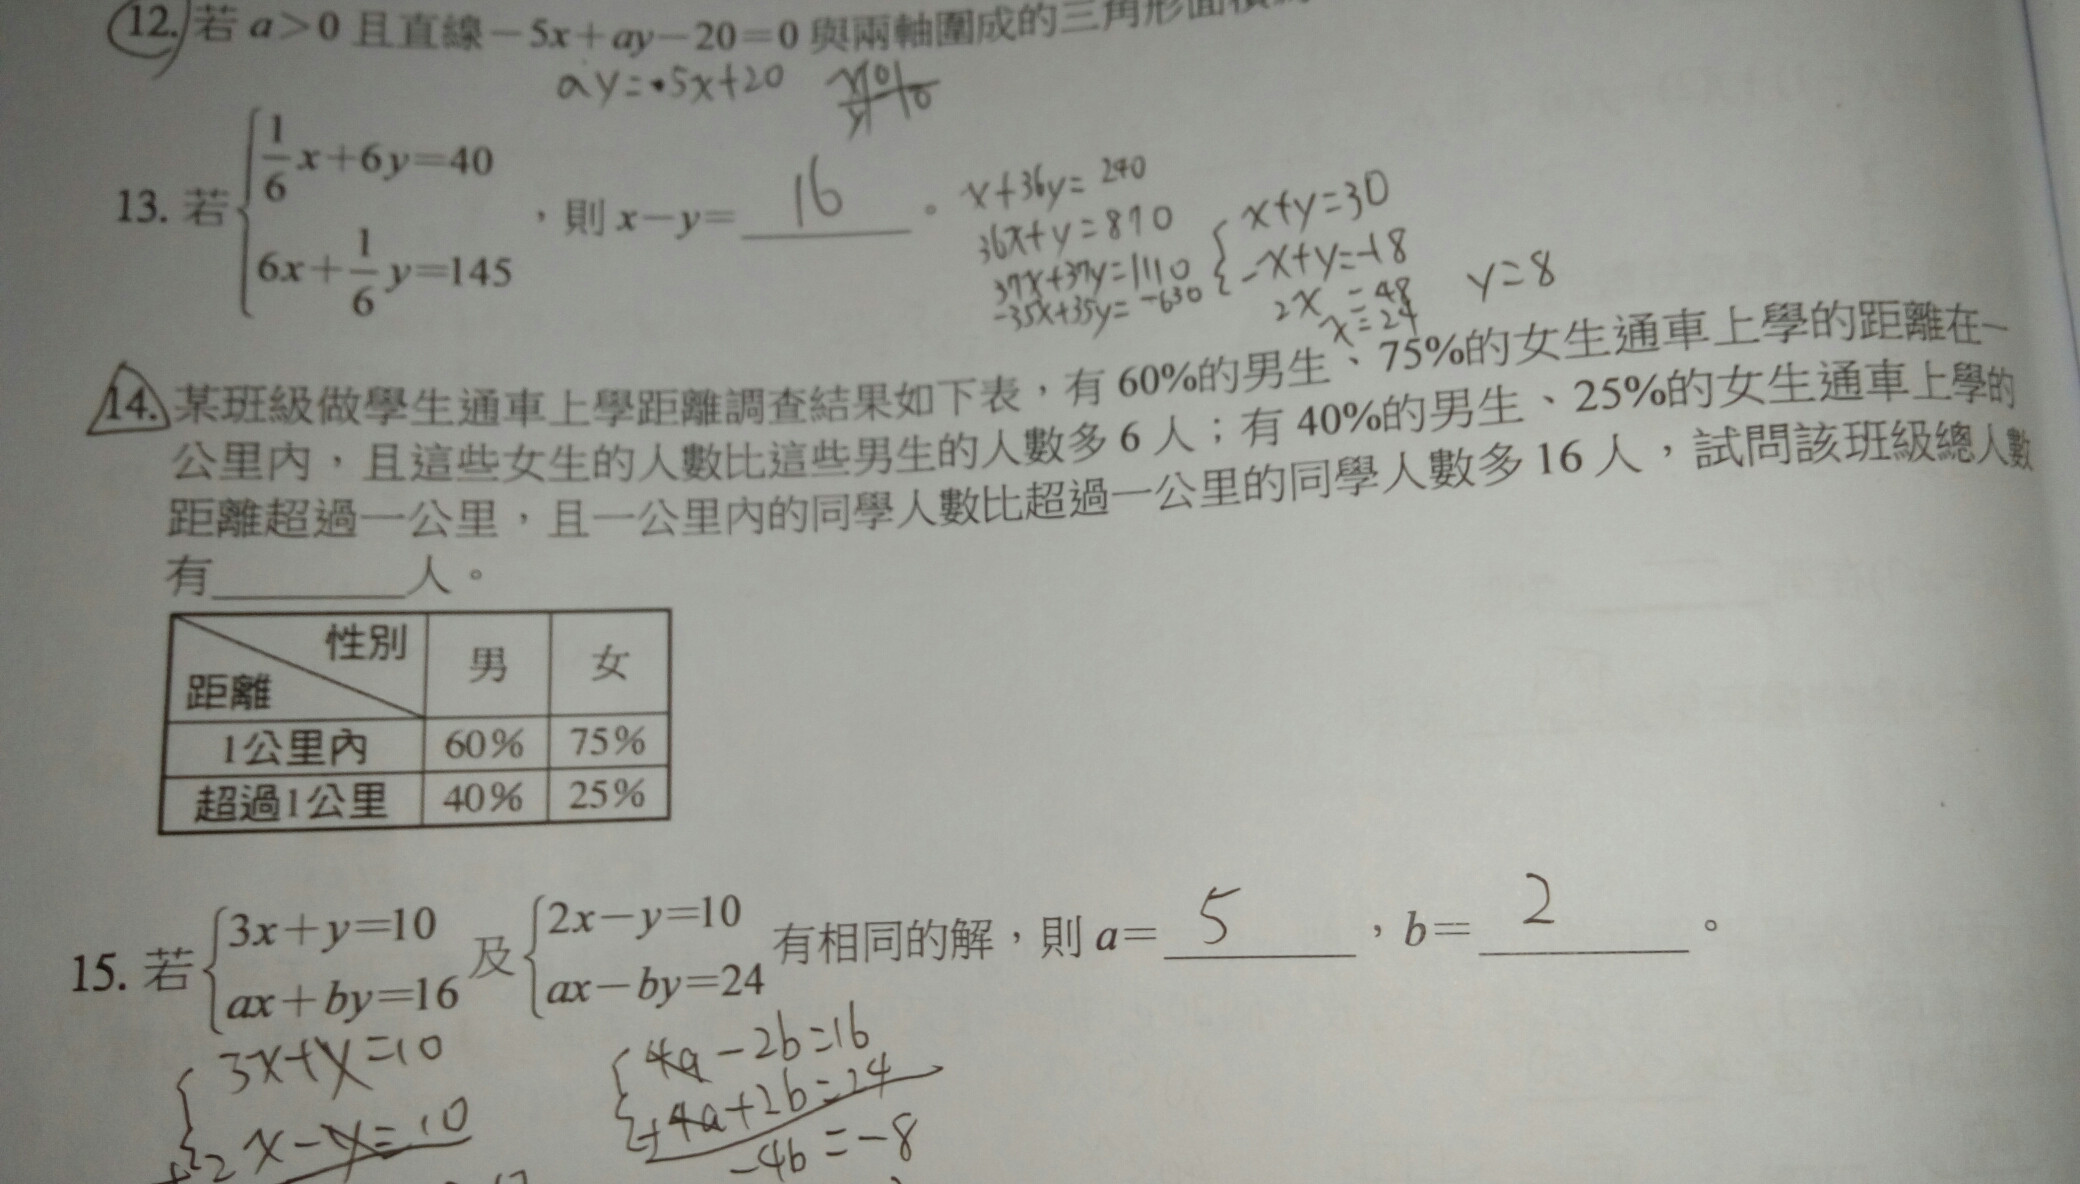 12. 若 a>0 且直線-5x+ay-20=0 與兩軸圍成的三角形面積
ay=5x+20
13. 若 1/6x+6y=40
6x+1/6y=145
,則 x-y= 16 。
x+36y=240
36x+y=870
37x+37y=1110
-35x+35y=-630
x+y=30
-x+y=-18
2x=48
x=24
y=8
14. 某班級做學生通車上學距離調查結果如下表,有 60%的男生、75%的女生通車上學的距離在一
公里內,且這些女生的人數比這些男生的人數多 6 人;有 40%的男生、25%的女生通車上學的
距離超過一公里,且一公里內的同學人數比超過一公里的同學人數多 16 人,試問該班級總人數
有________人。
性別 男 女
距離
1公里內 60% 75%
超過1公里 40% 25%
15. 若 3x+y=10
ax+by=16
及 2x-y=10
ax-by=24
有相同的解,則 a= 5 ,b= 2 。
3x+y=10
2x-y=10
4a-2b=16
4a+2b=24
-4b=-8